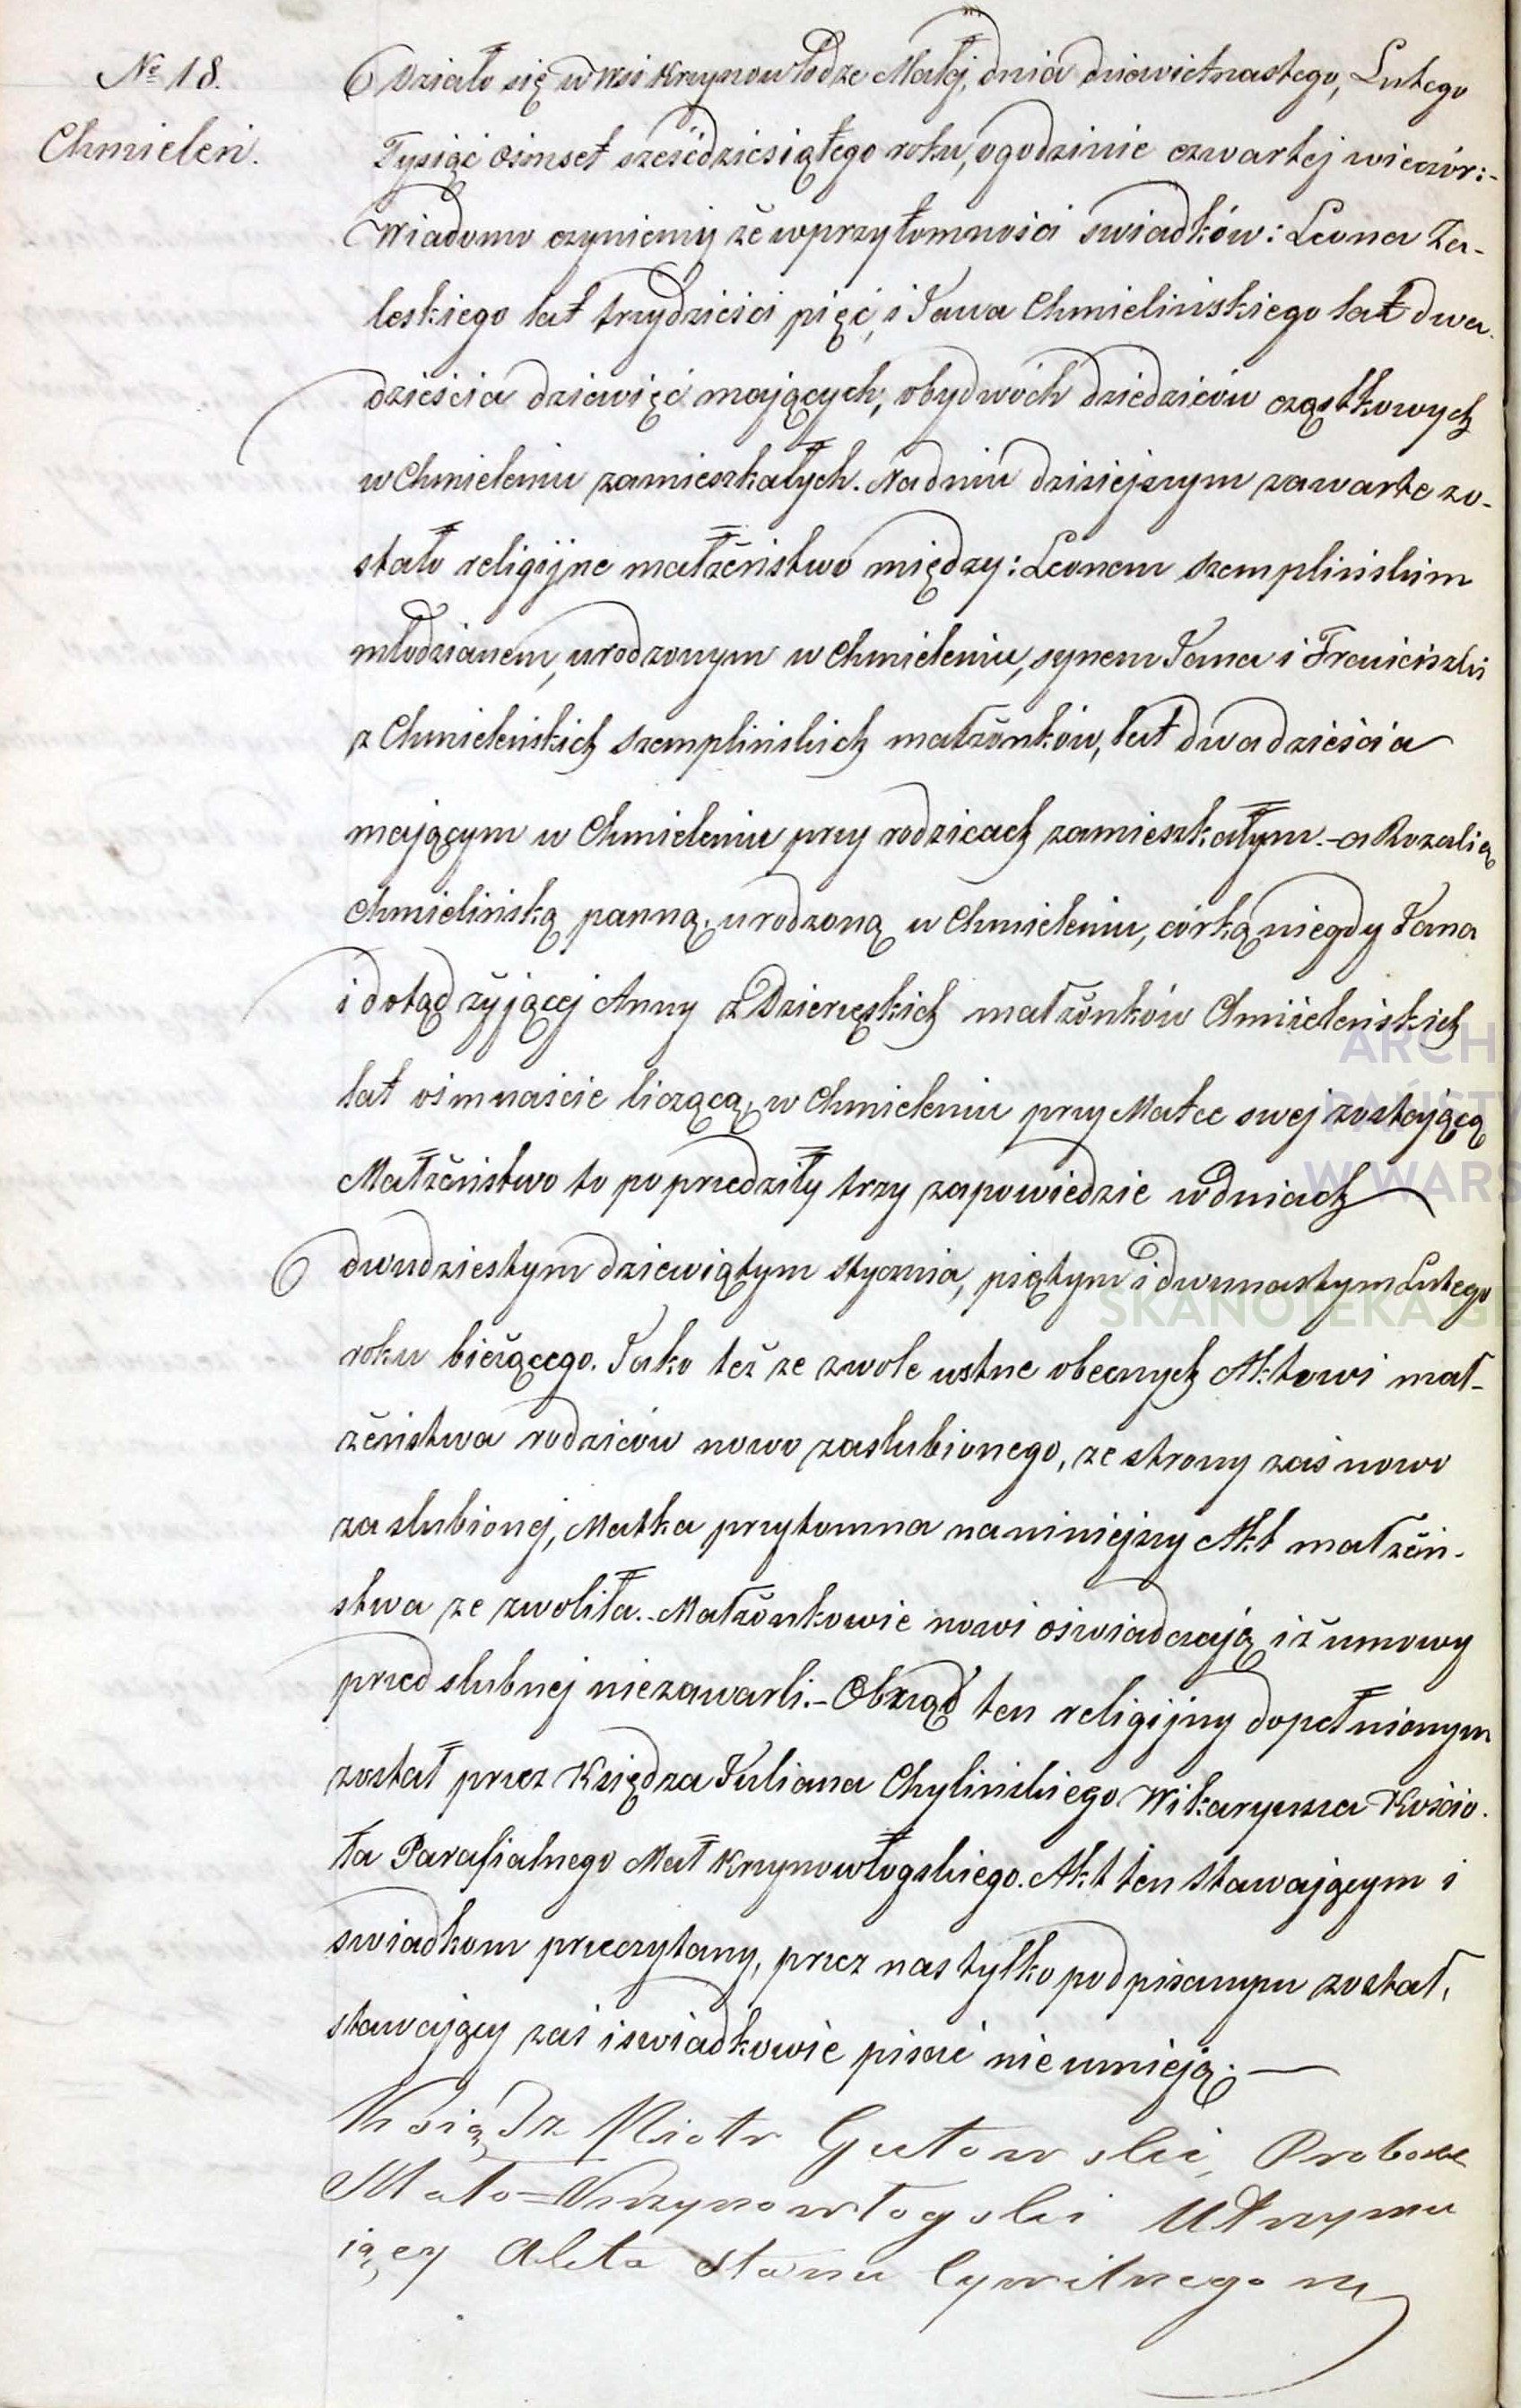 № 18.
Chmieleń.
Działo się w wsi Krzynowłodze Małej, dnia dziewietnastego, Lutego
Tysiąc ośmset sześćdziesiątego roku, o godzinie czwartej wieczór:-
Wiadomo czyniemy że w przytomności swiadków: Leona Za-
leskiego lat trzydzieści pięć, i Jana Chmielińskiego lat dwa-
dzieścia dziewięć mających, obydwóch dziedziców cząstkowych
w Chmieleniu zamieszkałych. Na dniu dzisiejszym zawarte zo-
stało religijne małżeństwo między: Leonem Szemplińskim
młodzianem, urodzonym w Chmieleniu, synem Jana i Franciszki
z Chmieleńskich Szemplińskich małżonków, lat dwadzieścia
mającym w Chmieleniu przy rodzicach zamieszkałym.- a Rozalią
Chmielińską panną, urodzoną w Chmieleniu, córką niegdy Jana
i dotąd żyjącej Anny z Dzierzęskich małżonków Chmieleńskich
lat ośmnaście liczącą, w Chmieleniu przy Matce swej zostającą
Małżeństwo to poprzedziły trzy zapowiedzie w dniach
dwudziestym dziewiątym Stycznia, piątym i dwunastym Lutego
roku bieżącego. Jako też ze zwole ustne obecnych Aktowi mał-
żeństwa rodziców nowo zaslubionego, ze strony zaś nowo
zaslubionej, Matka przytomna na niniejszy Akt małżeń-
stwa ze zwoliła.- Małżonkowie nowi oświadczają iż umowy
przed slubnej nie zawarli.- Obrząd ten religijny dopełnionym
został przez Księdza Juliana Chylińskiego Wikaryusza Kościo-
ła Parafialnego Mał Krzynowłogskiego. Akt ten stawającym i
swiadkom przeczytany, przez nas tylko podpisanym został,
stawający zaś i swiadkowie pisać nie umieją. —
Ksiądz Piotr Gutowski, Proboszcz
Mało=Krzynowłogski Utrzymu
iący Akta Stanu Cywilnego
ARCH
PAŃSTW
W WARS
SKANOTEKA.GE